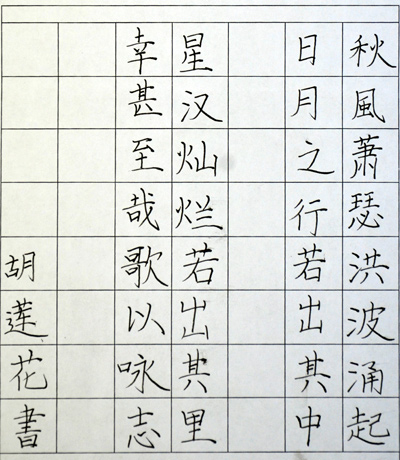 秋風萧瑟洪波涌起
日月之行若出其中
星汉灿烂若出其里
幸甚至哉歌以咏志
胡莲花書